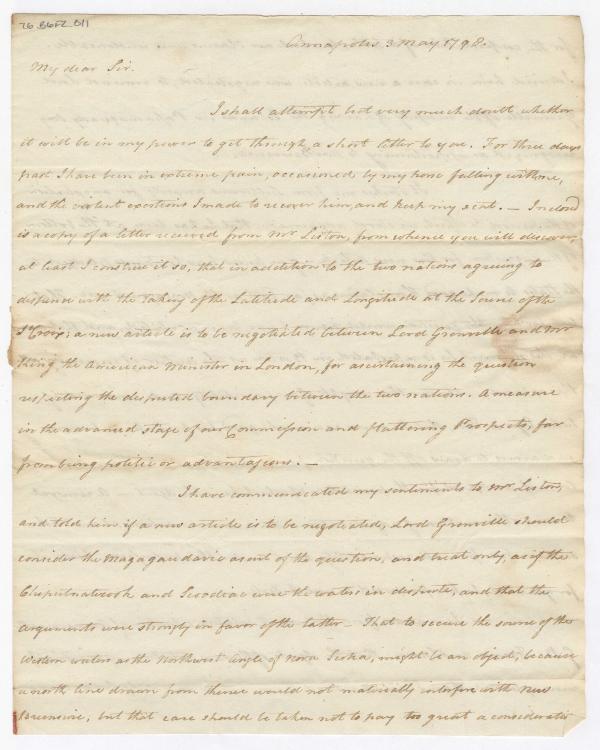 76.B6F2.011
Annapolis 3 May 1798.
My dear Sir.
I shall attempt, but very much doubt whether
it will be in my power to get through, a short letter to you. For three days
past I have been in extreme pain, occasioned by my horse falling with me,
and the violent exertions I made to recover him, and keep my seat. — Inclosed
is a copy of a letter received from Mr Liston, from whence you will discover,
at least I construe it so, that in addition to the two nations agreeing to
dispense with the taking of the Latitude and Longitude at the Source of the
St Croix; a new article is to be negotiated between Lord Grenville and Mr
King the American Minister in London, for ascertaining the question
respecting the disputed boundary between the two nations. A measure
in the advanced stage of our Commission and flattering Prospects, far
from being politic or advantageous. —
I have communicated my sentiments to Mr Liston,
and told him if a new article is to be negotiated, Lord Grenville should
consider the Magagaudavic as out of the question, and treat only, as if the
Cheputnatecook and Scoodiac were the waters in dispute, and that the
arguments were strongly in favor of the latter — That to secure the source of the
Western waters as the Northwest Angle of Nova Scotia, might be an object, because
a north line drawn from thence would not materially interfere with New
Brunswic, but that care should be taken not to pay too great a consideratio